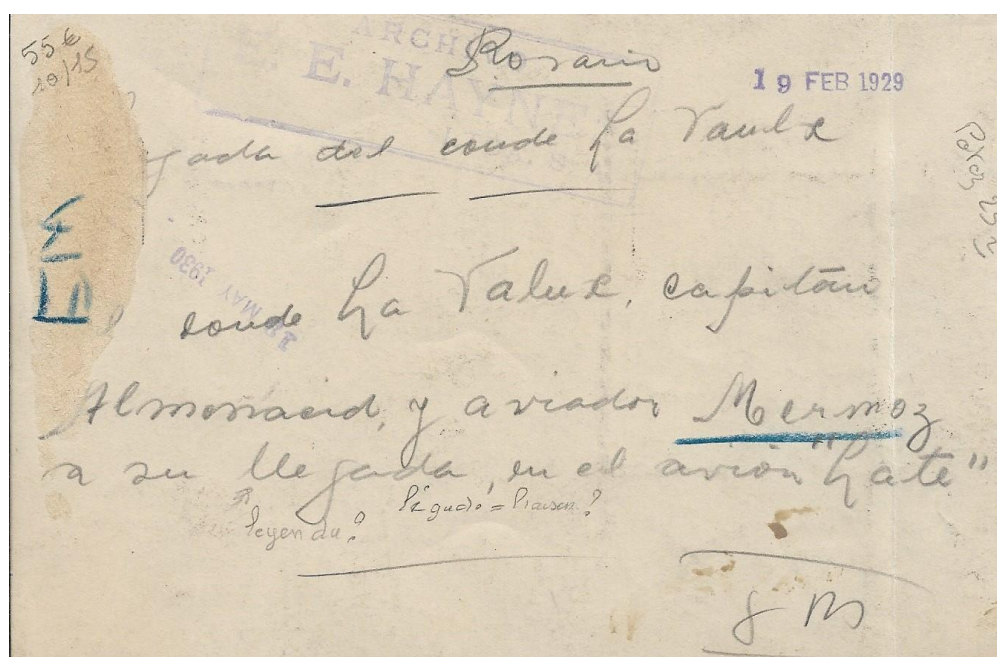 55 €
10/15
ARCHIVO
E. HAYNE
Rosario
19 FEB 1929
gada del conde La Vaulx
MAY 1930
conde La Valux, capitán
Almonacid, y aviador Mermoz
a su llegada, en el avión "Late"
leyenda?